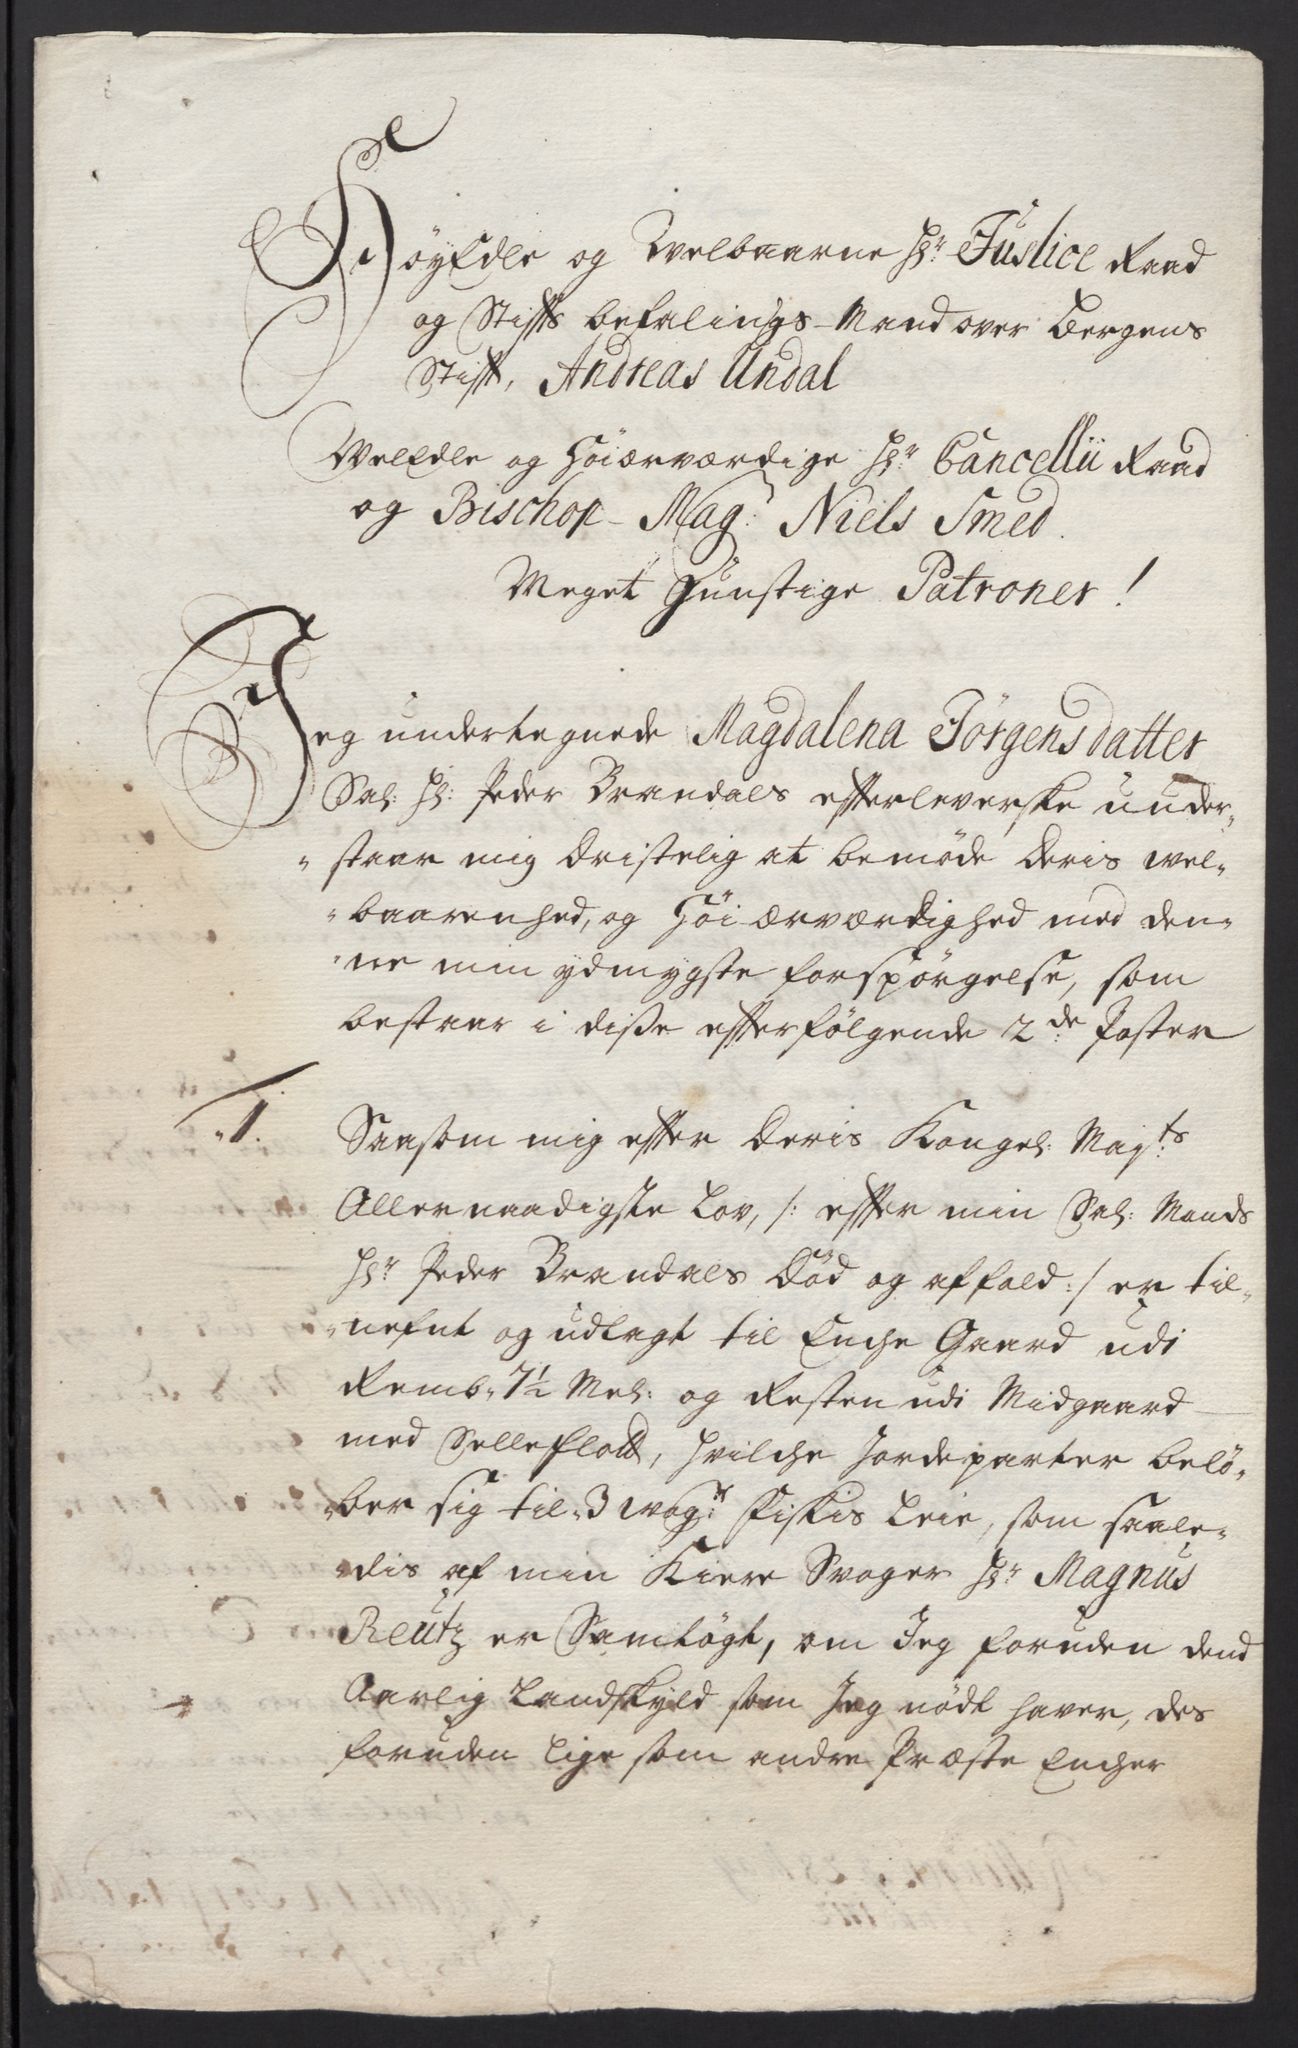 HöyEdle og Welbaarne Hr: Justice Raad
og Stifts befalings-Mand over Bergens
Stift, Andreas Undal
WelEdle og Höiærværdige Hr: Cancellii Raad
og Bischop - Mag: Niels Smed.
Meget Gunstige Patroner!
Jeg undertegnede Magdalena Jörgensdatter
Sal: Hr: Peder Brandals efterleverske under„
„staar mig dristelig at bemöde deris wel„
„baarenhed, og Höi ærværdighed med den„
„ne min ydmygste forspörgelse, som
bestaar i disse efterfölgende 2de: Poster
„1. Saasom mig efter deris Kongel: Mayts:
Allernaadigste Lov, /: efter min Sal: Mands
Hr: Peder Brandals död og affald :/ er til„
„nefnt og udlagt til Enche Gaard udi
Remb„ 7½ Mel: og Resten udi Midgaard
med Selleflott, hvilche Jordeparter belö„
„ber sig til„ 3 wogr: Fiskis Leie, som saale„
„dis af min Kiere Svoger Hr: Magnus
Reutz er Samtögt, om Jeg foruden dend
Aarlig Landskyld som Jeg nödt haver, des
foruden lige som andre Præste Encher